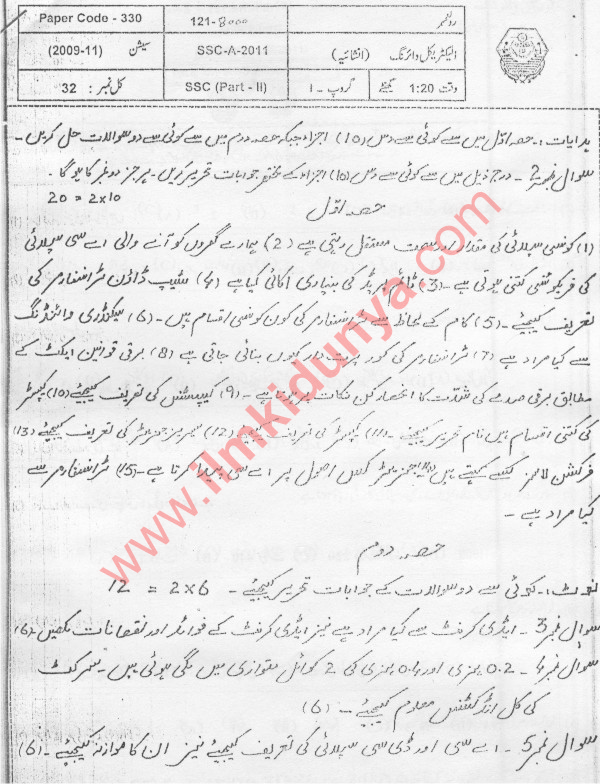 Paper Code - 330
121-8000
رولنمبر
(2009-11) سیشن
SSC-A-2011
الیکٹریکل وائرنگ (انشائیہ)
کل نمبر : 32
SSC (Part - II)
گروپ - I
وقت 1:20 گھنٹے
ہدایات :۔ حصہ اوّل میں سے کوئی سے دس (10) اجزاء جبکہ حصہ دوم میں سے کوئی سے دو سوالات حل کریں ۔
سوال نمبر 2 ۔ درج ذیل میں سے کوئی سے دس (10) اجزاء کے مختصر جوابات تحریر کریں ۔ ہر جز دو نمبر کا ہوگا ۔
20 = 2x10
حصہ اوّل
(1) کونسی سپلائی کی مقدار اور سمت مستقل رہتی ہے (2) ہمارے گھروں کو آنے والی اے سی سپلائی
کی فریکوئنسی کتنی ہوتی ہے ۔ (3) ٹائم پیریڈ کی بنیادی اکائی کیا ہے (4) سٹیپ ڈاؤن ٹرانسفارمر کی
تعریف کیجیئے ۔ (5) کام کے لحاظ سے ٹرانسفارمر کی کون کونسی اقسام ہیں ۔ (6) سیکنڈری وائنڈنگ
سے کیا مراد ہے (7) ٹرانسفارمر کی کور پرت دار کیوں بنائی جاتی ہے (8) برقی قوانین ایکٹ کے
مطابق برقی صدمے کی شدّت کا انحصار کن نکات پر ہوتا ہے ۔ (9) کپیسٹنس کی تعریف کیجیئے (10) کپیسٹر
کی کتنی اقسام ہیں نام تحریر کیجیئے ۔ (11) کپیسٹر کی تعریف کیجیئے (12) سیریز موٹر کی تعریف کیجیئے (13)
فرکشن لاسز کسے کہتے ہیں (14) جنریٹر کس اصول پر اے سی پیدا کرتا ہے ۔ (15) ٹرانسفارمر سے
کیا مراد ہے ۔
حصہ دوم
نوٹ :۔ کوئی سے دو سوالات کے جوابات تحریر کیجیئے ۔ 12 = 2x6
سوال نمبر 3 ۔ ایڈی کرنٹ سے کیا مراد ہے نیز ایڈی کرنٹ کے فوائد اور نقصانات لکھیں ۔ (6)
سوال نمبر 4 ۔ 0.2 ہنری اور 0.4 ہنری کی 2 کوائل متوازی میں لگی ہوئی ہیں ۔ سرکٹ
کی کل انڈکٹنس معلوم کیجیئے ۔ (6)
سوال نمبر 5 ۔ اے سی اور ڈی سی سپلائی کی تعریف کیجیئے نیز ان کا موازنہ کیجیئے ۔ (6)
www.ilmkidunya.com